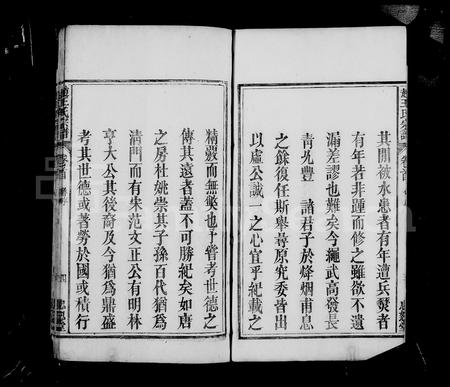 其間被水患者有年遭兵燹者
有年若非踵而修之雖欲不遺
漏差謬也難矣今繩武高發長
青光豐 諸君子於烽烟甫息
之餘復任斯舉尋原究委皆出
以虛公誠一之心宜乎紀載之
精覈而無憗也予嘗考世德之
傳其遠者蓋不可勝紀矣如唐
之房杜姚崇其子孫百代猶為
清門而有朱范文正公有明林
亨大公其後裔及今猶為鼎盛
考其世德或著勞於國或積行